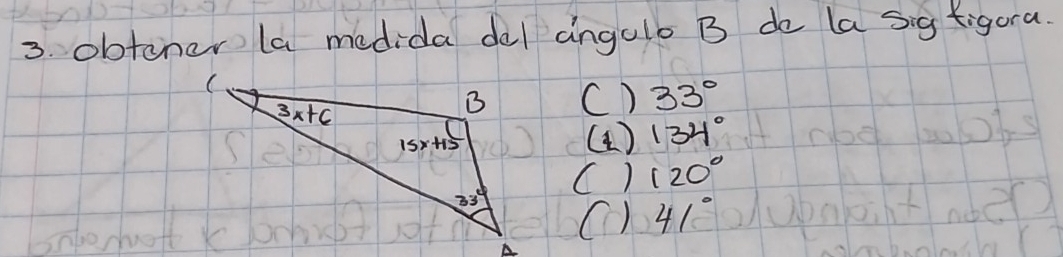 3. obtener la medida del ángulo B de la sig figura.
C
3x+6
B
15x+15
33°
A
( ) 33°
(1) 134°
( ) 120°
( ) 41°